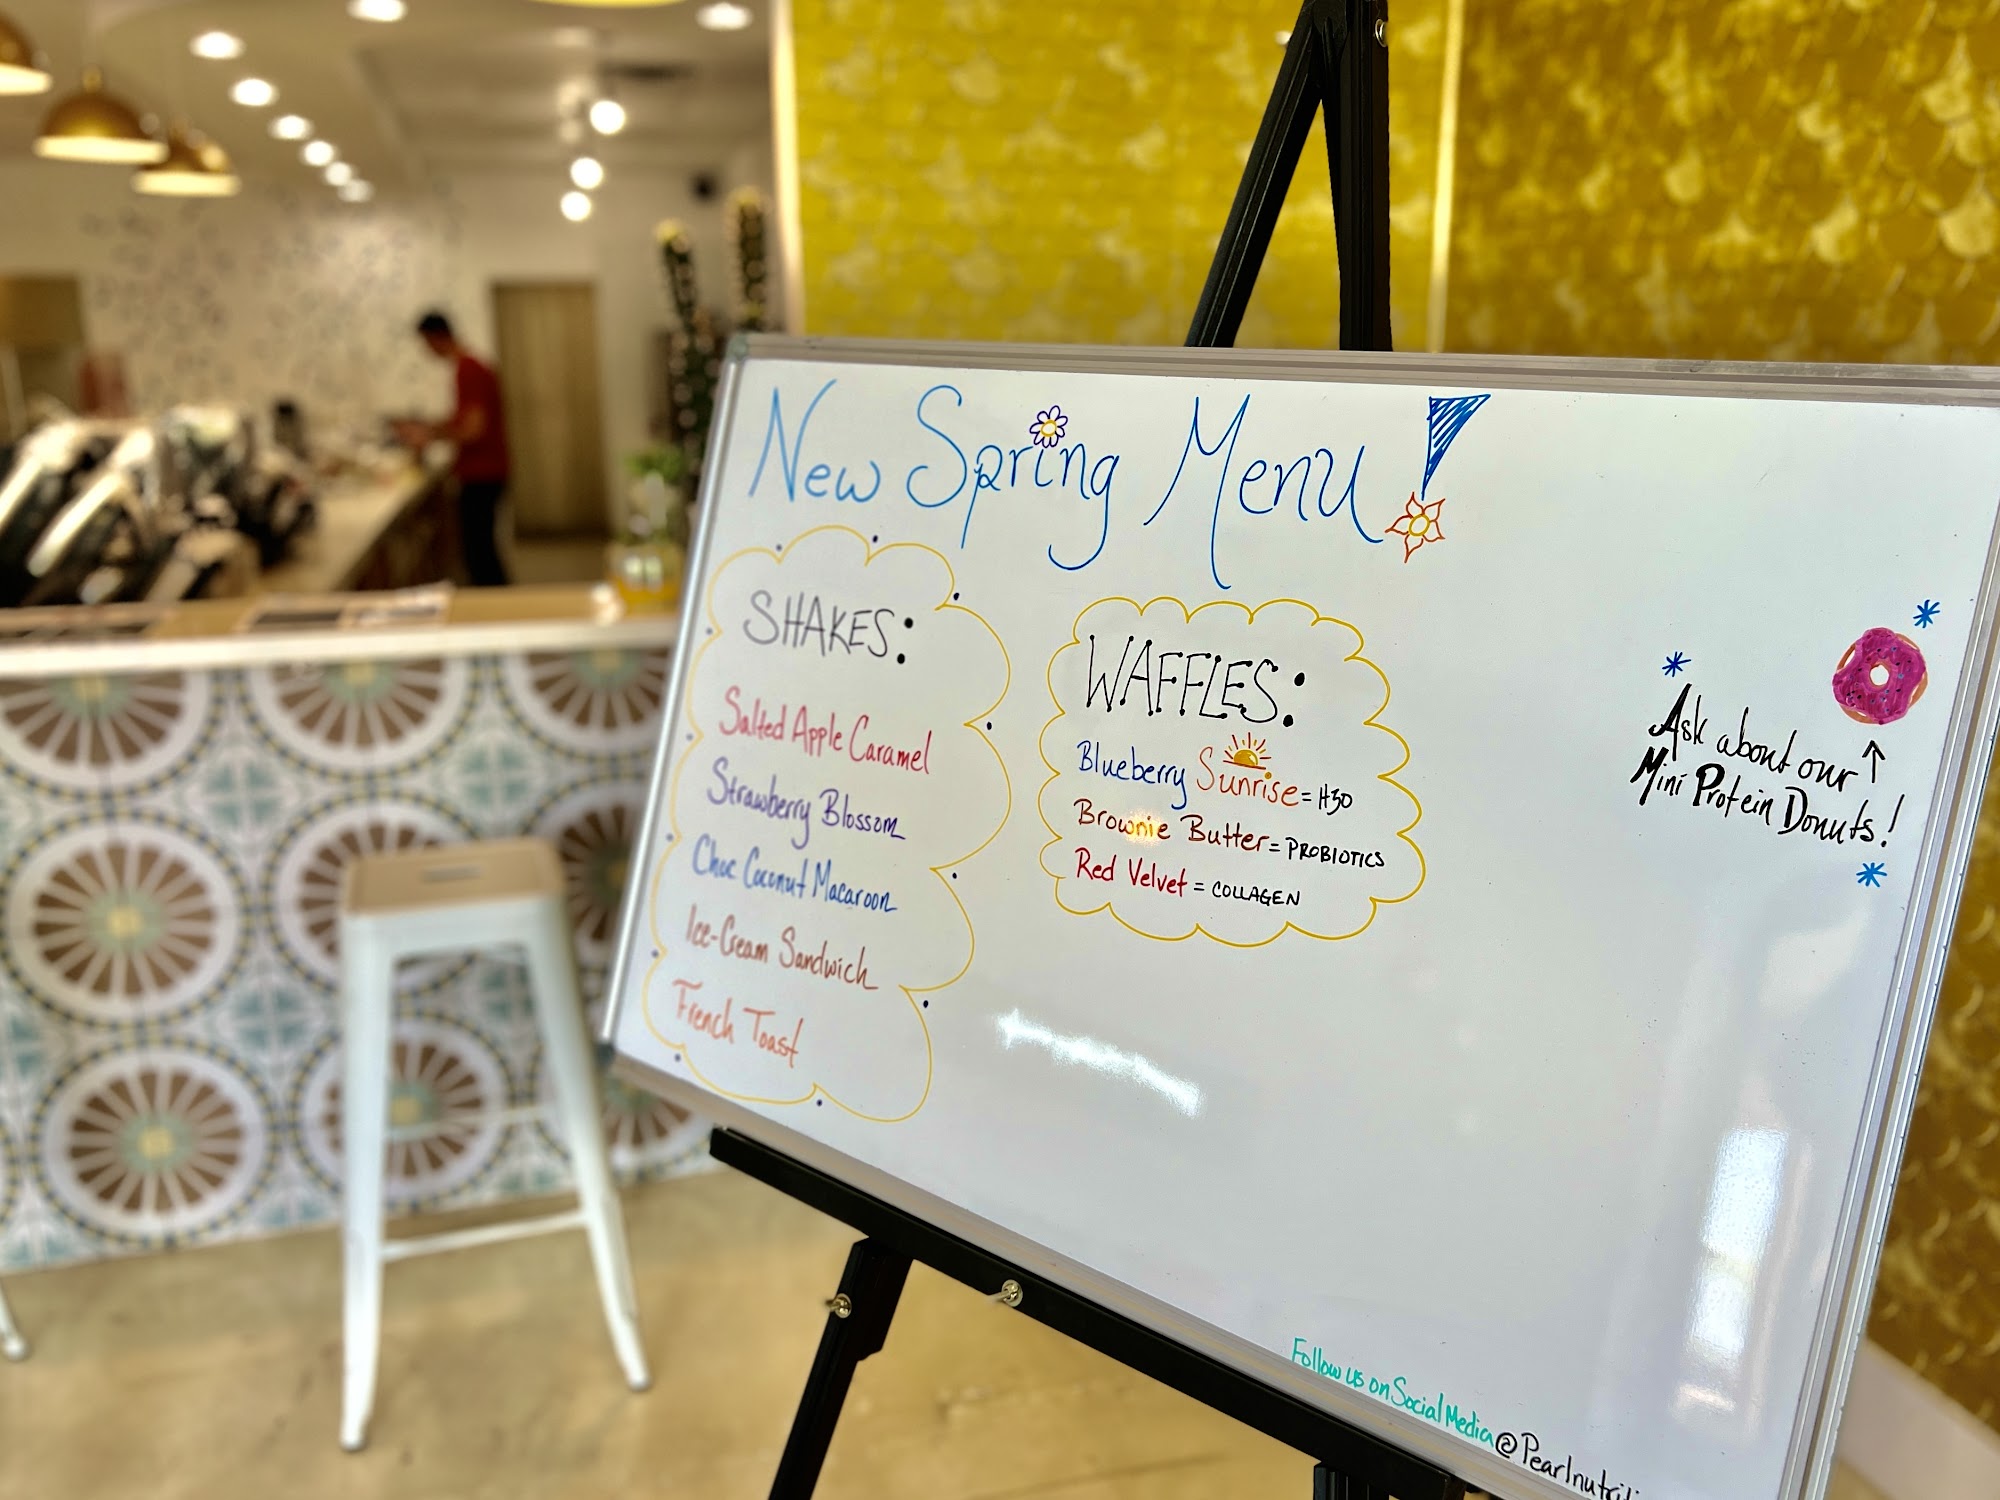 New Spring Menu!
SHAKES:
Salted Apple Caramel
Strawberry Blossom
Choc Coconut Macaroon
Ice-Cream Sandwich
French Toast
WAFFLES:
Blueberry Sunrise = H30
Brownie Butter = PROBIOTICS
Red Velvet = COLLAGEN
Ask about our
Mini Protein Donuts!
Follow us on Social Media @Pearlnutriti